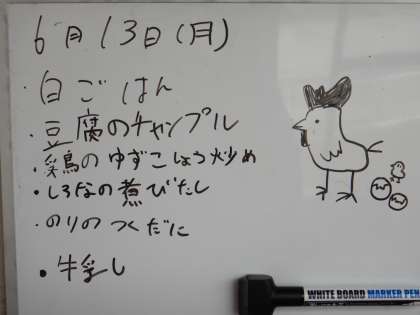 6月13日(月)
・白ごはん
・豆腐のチャンプル
・鶏のゆずこしょう炒め
・しろなの煮びたし
・のりのつくだに
・牛乳し
WHITE BOARD MARKER PEN